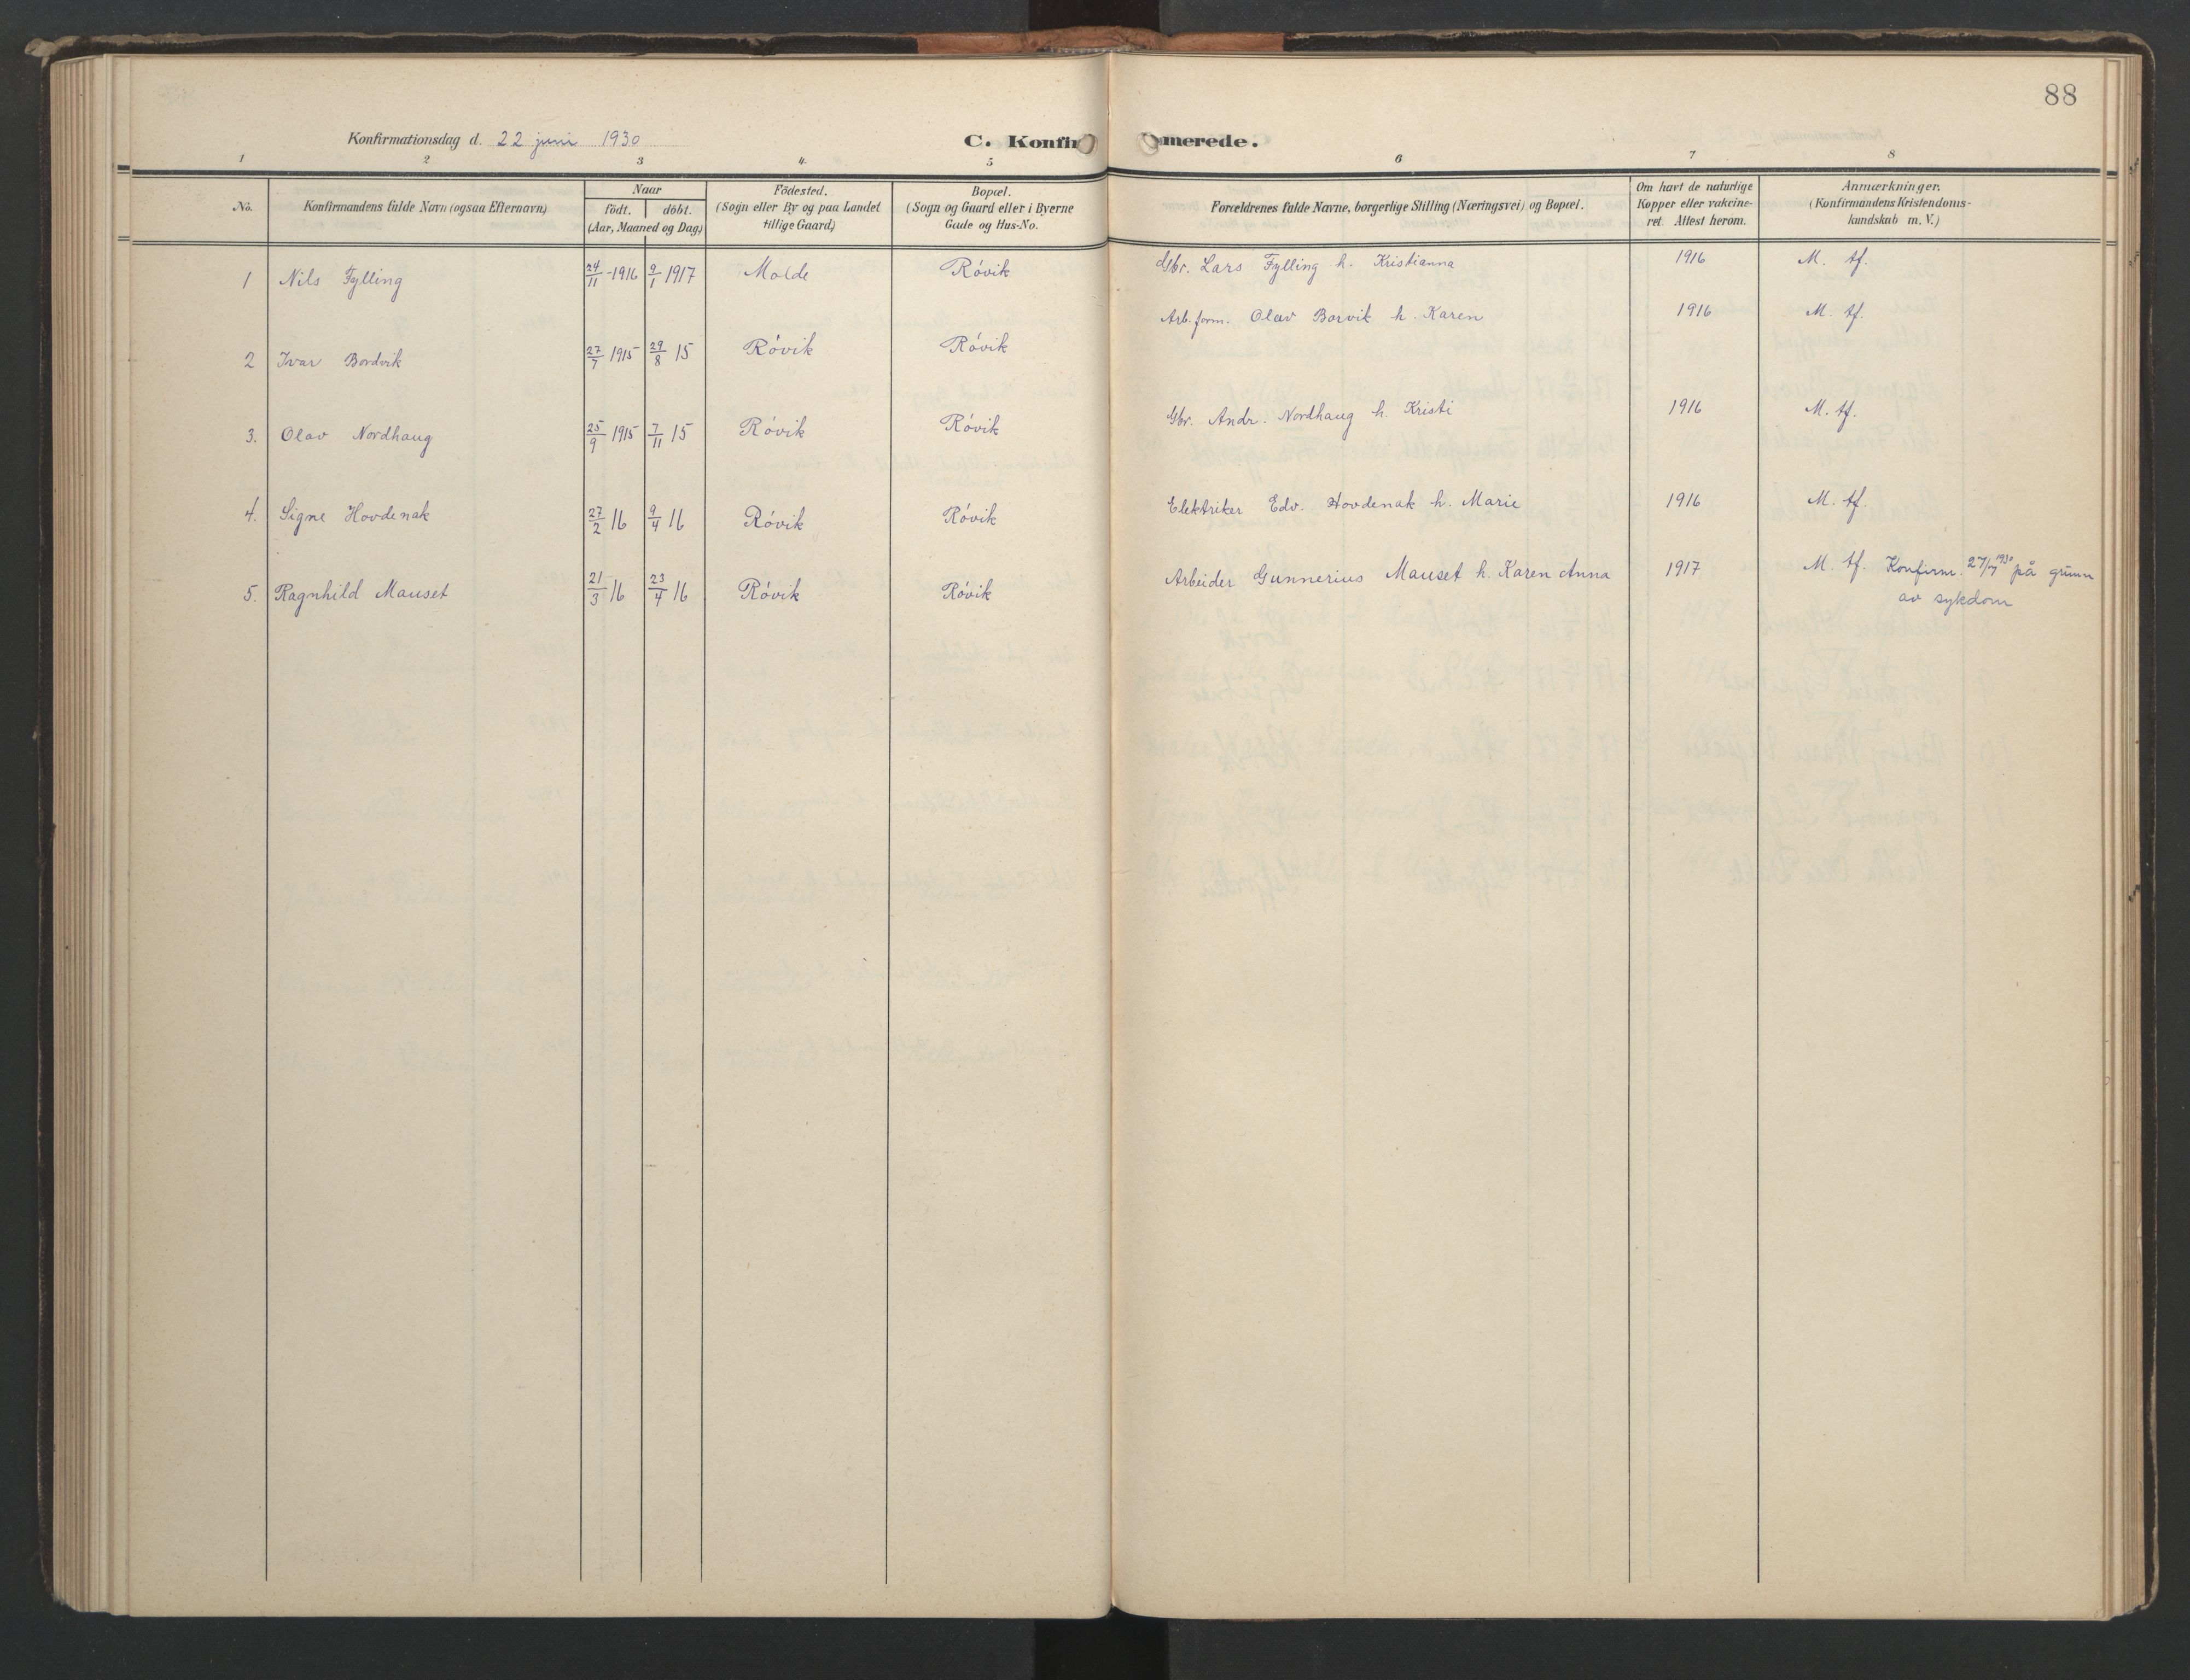 88
Konfirmationsdag d. 22 juni 1930
C. Konfir merede.
1 2 3 4 5 6 7 8
No.
Konfirmandens fulde Navn (ogsaa Efternavn)
Naar
födt. döbt.
(Aar, Maaned og Dag)
Födested.
(Sogn eller By og paa Landet
tillige Gaard)
Bopæl.
(Sogn og Gaard eller i Byerne
Gade og Hus-No.
Forældrenes fulde Navne, borgerlige Stilling (Næringsvei) og Bopæl.
Om havt de naturlige
Kopper eller vakcine-
ret. Attest herom.
Anmærkninger.
(Konfirmandens Kristendoms-
kundskab m. V.)
1 Nils Fylling 24/11-1916 9/1 1917 Molde Róvik Gbr. Lars Fylling h. Kristianna 1916 M. tf.
2 Ivar Bordvik 27/7 1915 29/8 15 Róvik Róvik Arb.form. Olav Borvik h. Karen 1916 M. tf.
3. Olav Nordhaug 25/9 1915 7/11 15 Róvik Róvik Gbr. Andr. Nordhaug h. Kristi 1916 M. tf.
4. Signe Hovdenak 27/2 16 9/4 16 Róvik Róvik Elektriker Edv. Hovdenak h. Marie 1916 M. tf.
5. Ragnhild Mauset 21/3 16 23/4 16 Róvik Róvik Arbeider Gunnerius Mauset h. Karen Anna 1917 M. tf. Konfirm. 27/7 1930 på grunn
av sykdom